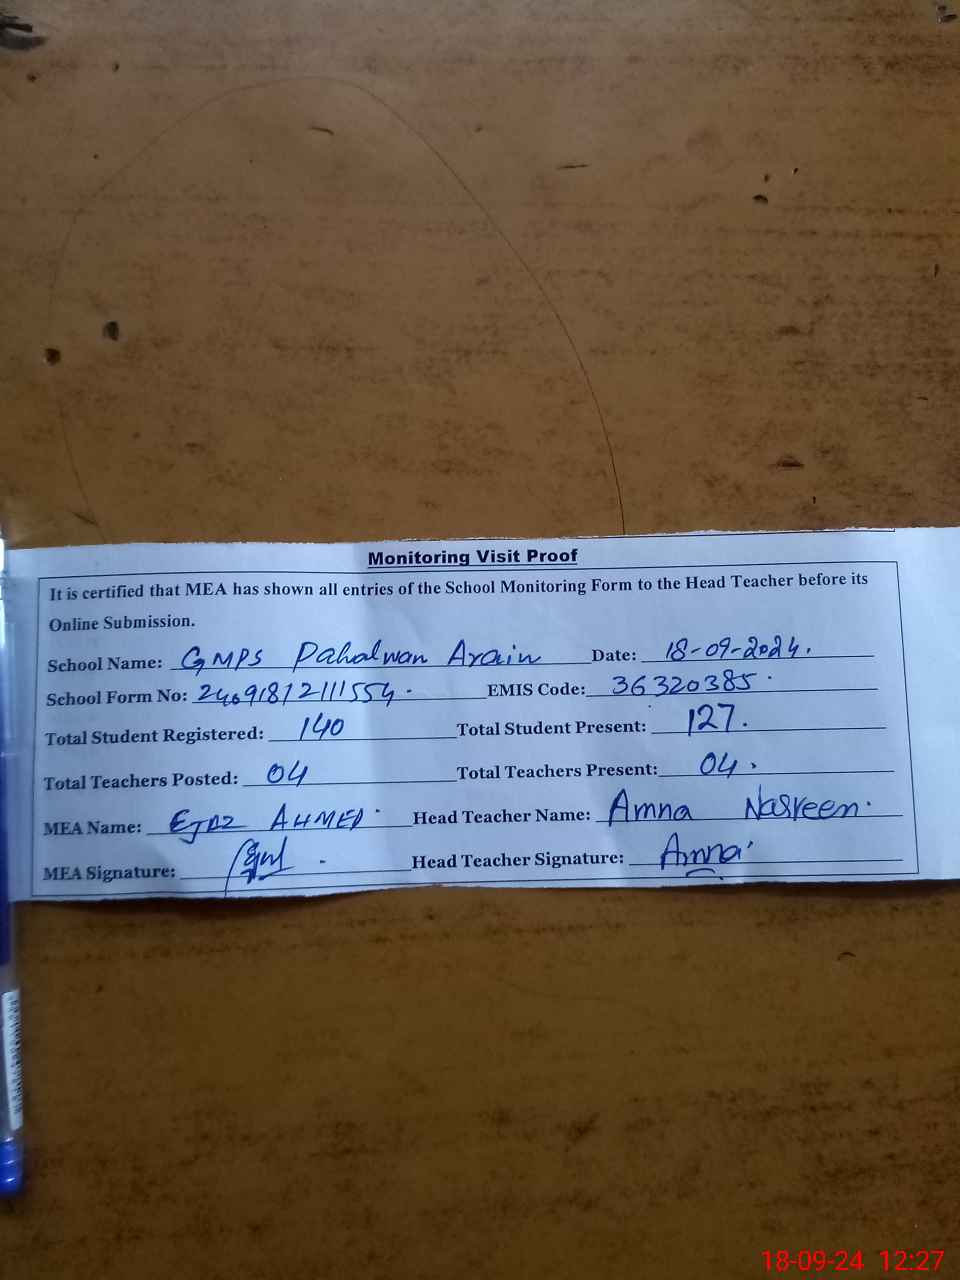 Monitoring Visit Proof
It is certified that MEA has shown all entries of the School Monitoring Form to the Head Teacher before its
Online Submission.
School Name: GMPS Pahalwan Arain Date: 18-09-2024.
School Form No: 24091812111554. EMIS Code: 36320385.
Total Student Registered: 140 Total Student Present: 127.
Total Teachers Posted: 04 Total Teachers Present: 04.
MEA Name: EJAZ AHMED. Head Teacher Name: Amna Nasreen.
MEA Signature: Head Teacher Signature: Amna
18-09-24 12:27